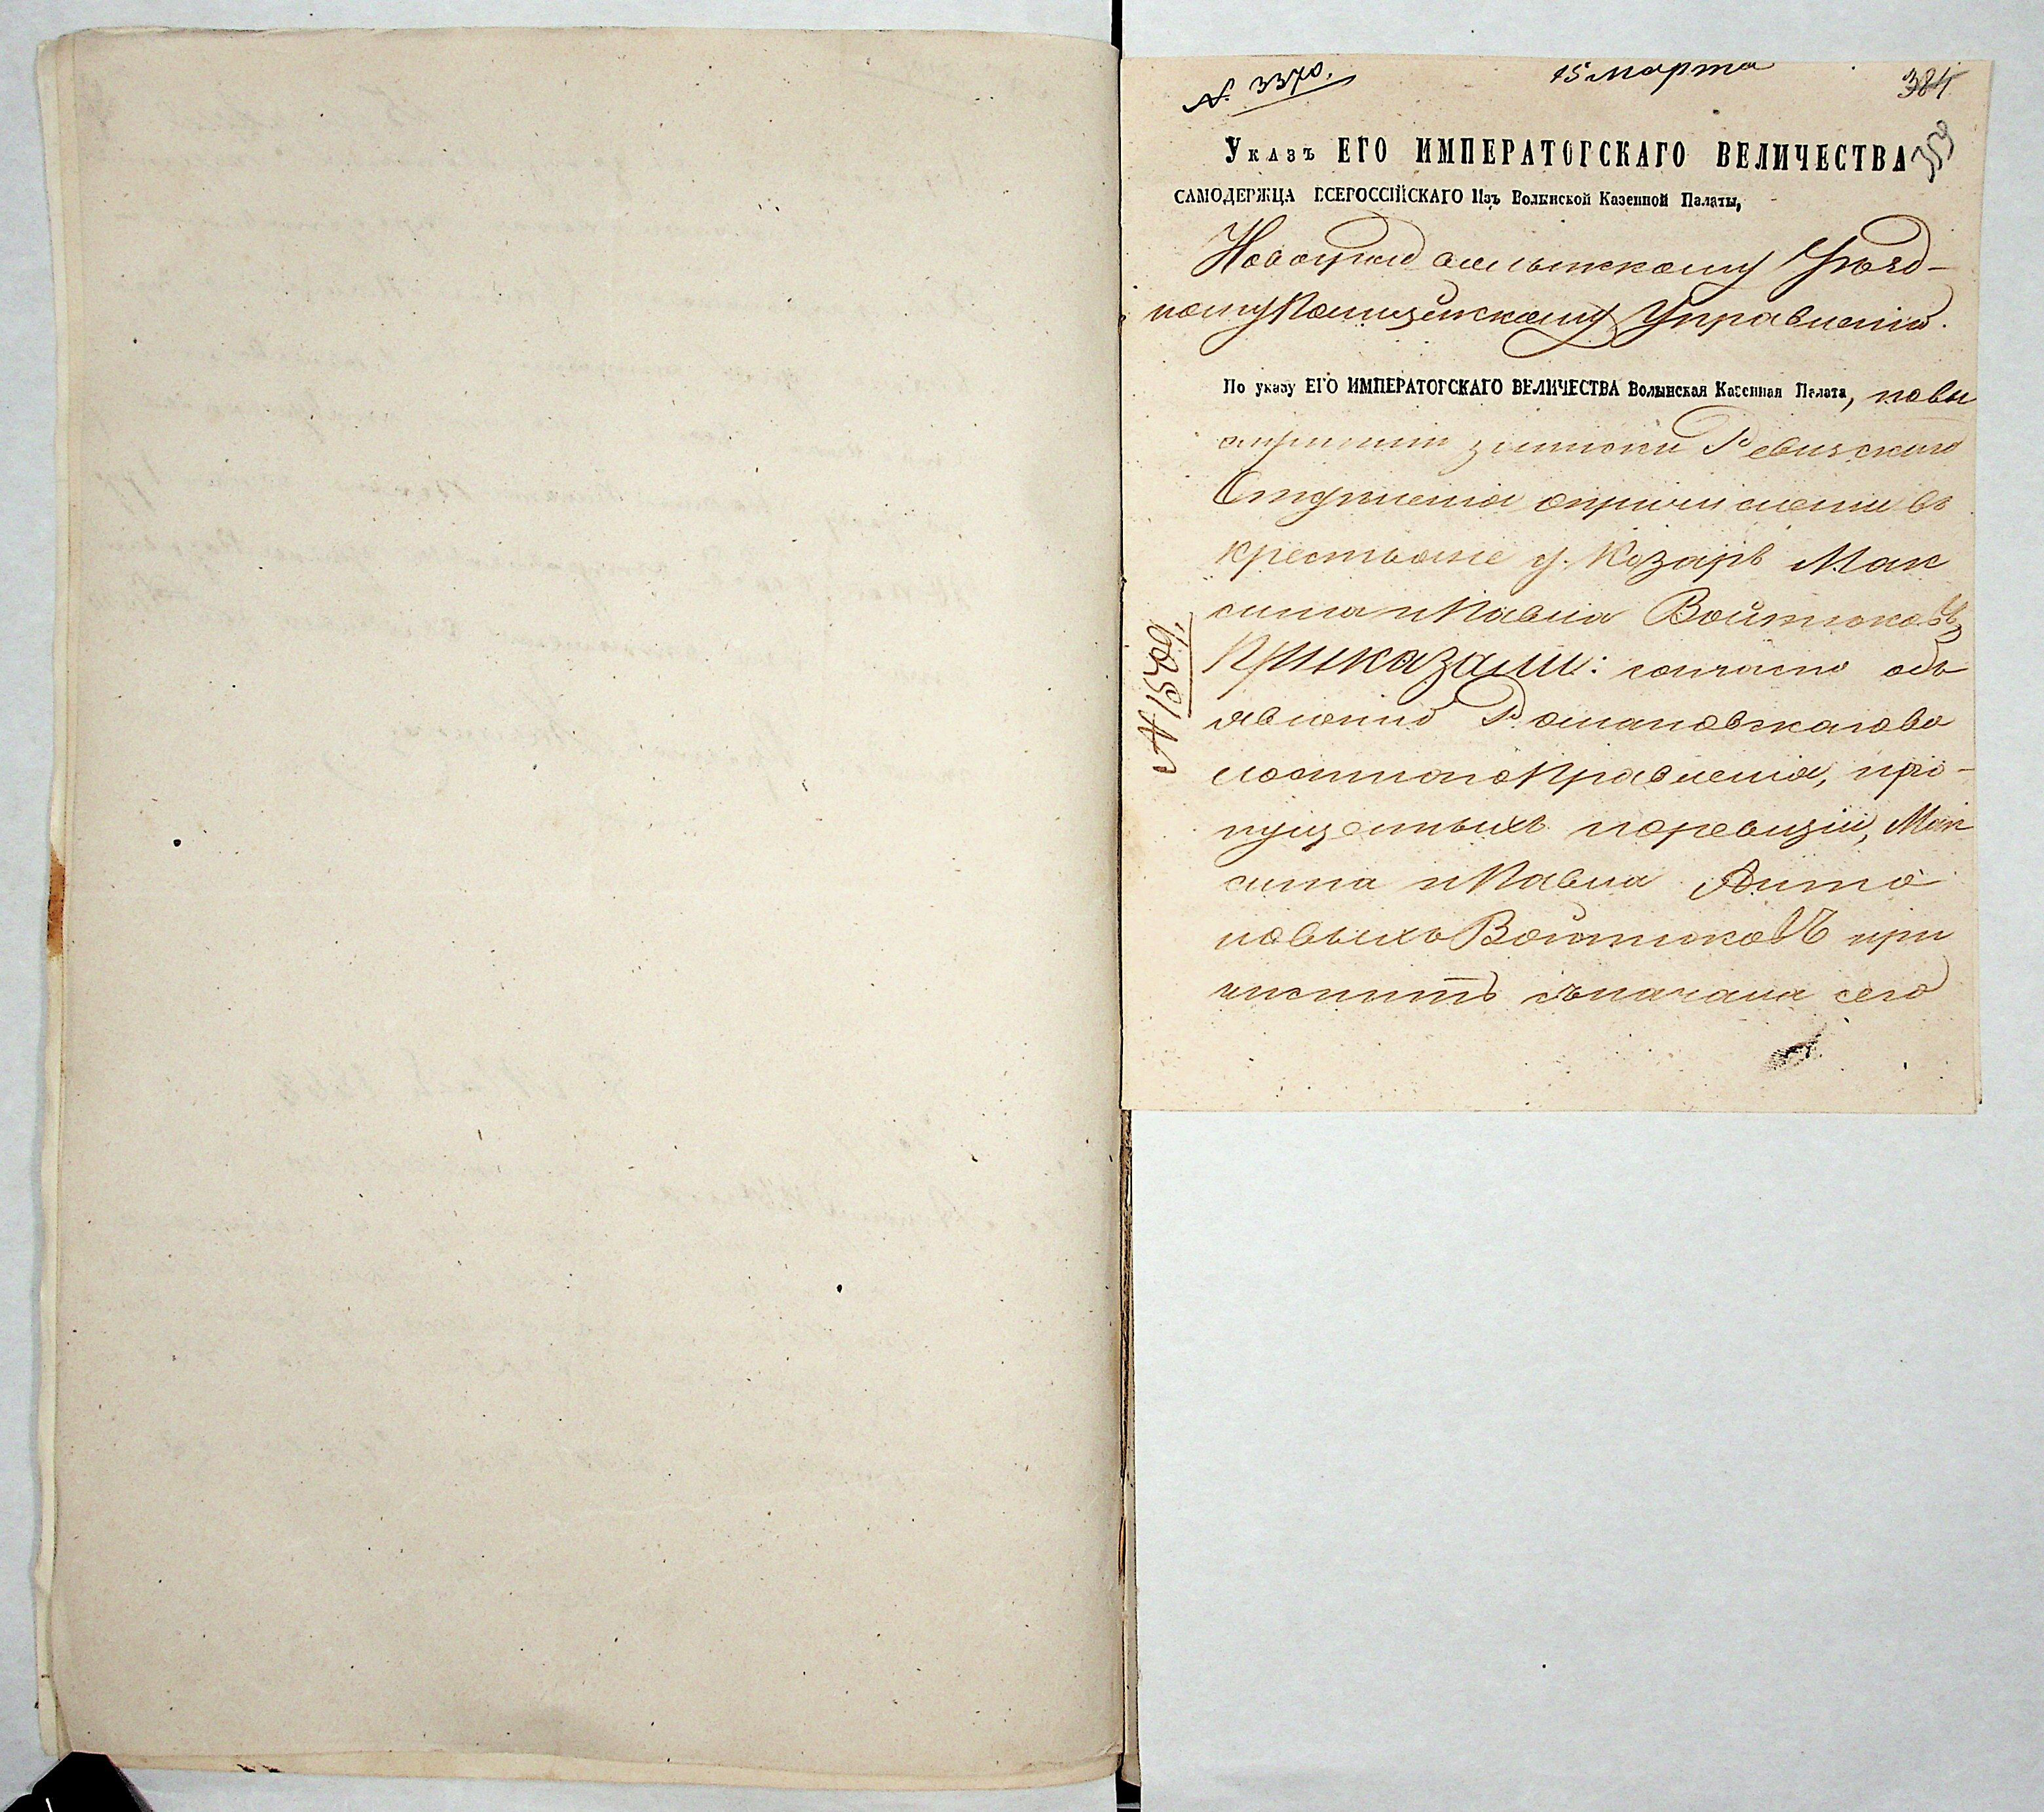 № 3370.
15 марта
384
359
Указъ ЕГО ИМПЕРАТОРСКАГО ВЕЛИЧЕСТВА
САМОДЕРЖЦА ВСЕРОССІЙСКАГО Изъ Волынской Казенной Палаты,
Новоградволынскому Уѣзд-
ному Полицейскому Управленію.
По указу ЕГО ИМПЕРАТОРСКАГО ВЕЛИЧЕСТВА Волынская Казенная Палата, по вы
слушаніи записки Ревизскаго
Отдѣленія о причисленіи въ
крестьяне д. Козаръ Мак
сима и Павла Войтюковъ,
Приказали: согласно объ
явленію Романовскаго во
лостного Правленія, про-
пущенныхъ по ревизіи, Мак
сима и Павла Анто
новыхъ Войтюковъ при
числить съ начала сего
№ 1509.